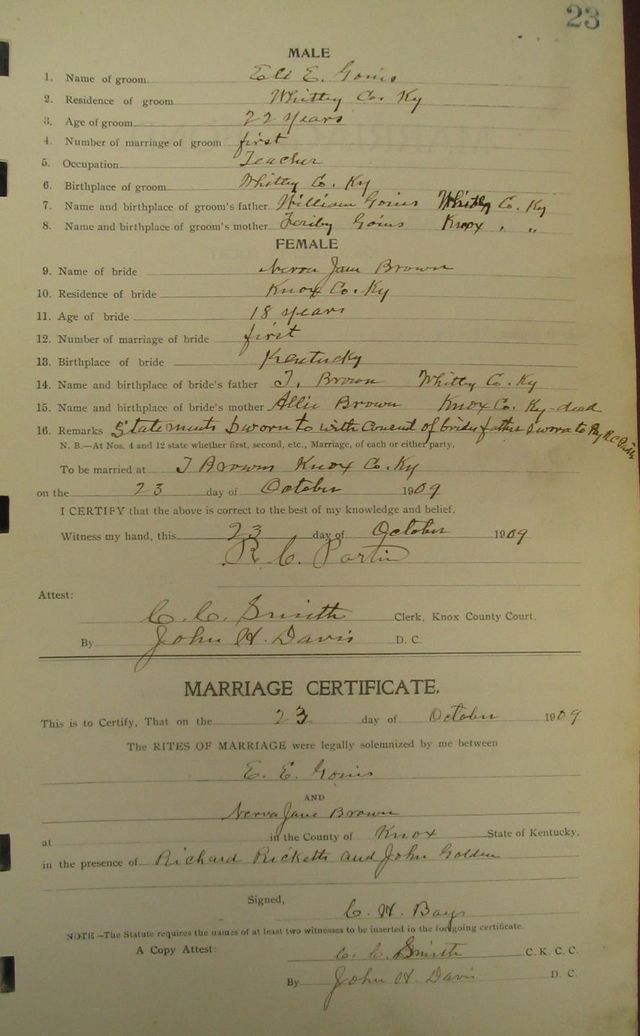 23
MALE
1. Name of groom Eli E. Goins
2. Residence of groom Whitley Co. Ky
3. Age of groom 22 years
4. Number of marriage of groom first
5. Occupation Teacher
6. Birthplace of groom Whitley Co. Ky
7. Name and birthplace of groom's father William Goins Whitley Co. Ky
8. Name and birthplace of groom's mother Goins Knox " "
FEMALE
9. Name of bride Nerva Jane Brown
10. Residence of bride Knox Co. Ky
11. Age of bride 18 years
12. Number of marriage of bride first
13. Birthplace of bride Kentucky
14. Name and birthplace of bride's father T. Brown Whitley Co. Ky
15. Name and birthplace of bride's mother Allie Brown Knox Co. Ky-dead
16. Remarks Statements Sworn to with Consent of brides father Sworn to By R.C.
N. B.—At Nos. 4 and 12 state whether first, second, etc., Marriage, of each or either party.
To be married at T Browns Knox Co. Ky
on the 23 day of October 1909
I CERTIFY that the above is correct to the best of my knowledge and belief.
Witness my hand, this 23 day of October 1909
R. C. Partin
Attest:
C. C. Smith Clerk, Knox County Court.
By John H. Davis D. C.
MARRIAGE CERTIFICATE.
This is to Certify, That on the 23 day of October 1909
The RITES OF MARRIAGE were legally solemnized by me between
E. E. Goins
AND
Nerva Jane Brown
at in the County of Knox State of Kentucky,
in the presence of Richard Ricketts and John Golden
Signed,
C. H. Bays
NOTE—The Statute requires the names of at least two witnesses to be inserted in the foregoing certificate.
A Copy Attest: C. C. Smith C. K. C. C.
By John H. Davis D. C.